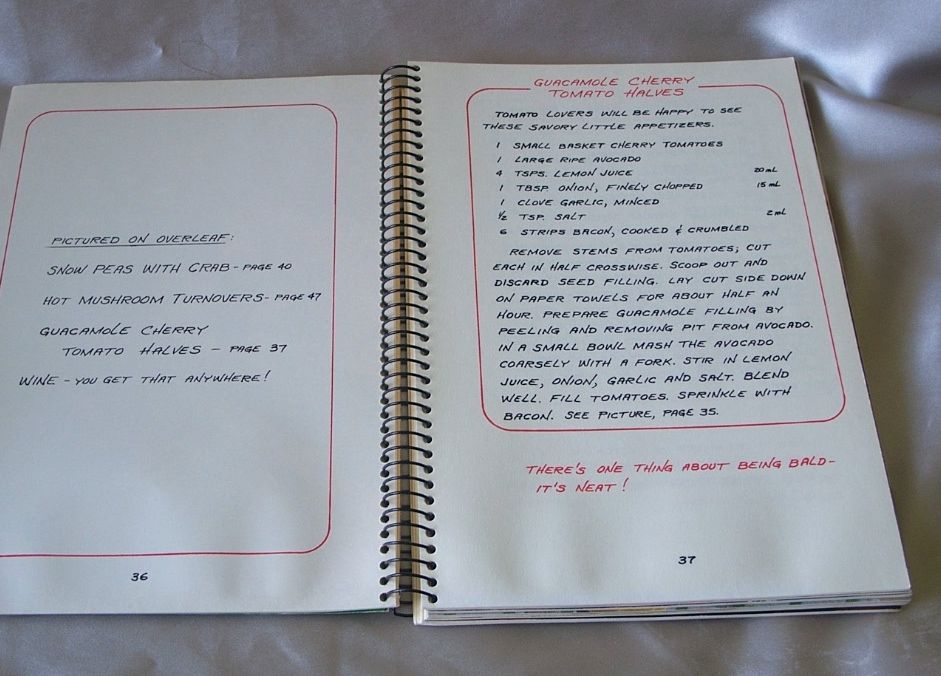 PICTURED ON OVERLEAF:
SNOW PEAS WITH CRAB - PAGE 40
HOT MUSHROOM TURNOVERS - PAGE 47
GUACAMOLE CHERRY
TOMATO HALVES - PAGE 37
WINE - YOU GET THAT ANYWHERE!
36
GUACAMOLE CHERRY
TOMATO HALVES
TOMATO LOVERS WILL BE HAPPY TO SEE
THESE SAVORY LITTLE APPETIZERS.
1 SMALL BASKET CHERRY TOMATOES
1 LARGE RIPE AVOCADO
4 TSPS. LEMON JUICE 20 mL
1 TBSP ONION, FINELY CHOPPED 15 mL
1 CLOVE GARLIC, MINCED
½ TSP. SALT 2 mL
6 STRIPS BACON, COOKED & CRUMBLED
REMOVE STEMS FROM TOMATOES; CUT
EACH IN HALF CROSSWISE. SCOOP OUT AND
DISCARD SEED FILLING. LAY CUT SIDE DOWN
ON PAPER TOWELS FOR ABOUT HALF AN
HOUR. PREPARE GUACAMOLE FILLING BY
PEELING AND REMOVING PIT FROM AVOCADO.
IN A SMALL BOWL MASH THE AVOCADO
COARSELY WITH A FORK. STIR IN LEMON
JUICE, ONION, GARLIC AND SALT. BLEND
WELL. FILL TOMATOES. SPRINKLE WITH
BACON. SEE PICTURE, PAGE 35.
THERE'S ONE THING ABOUT BEING BALD -
IT'S NEAT!
37